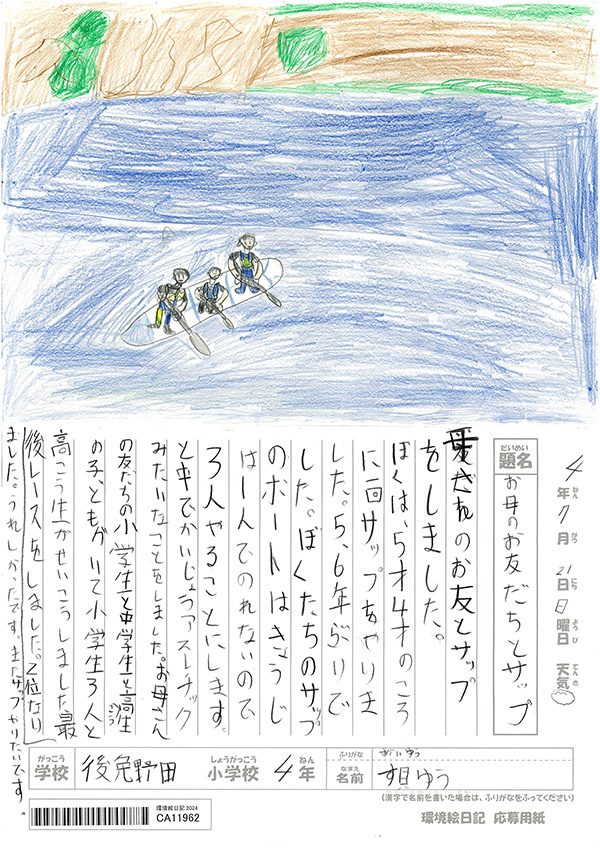 4年7月21日日曜日 天気
ねん がつ にち ようび てんき
だいめい
題名 お母のお友だちとサップ
のお友とサップ
をしました。
ぼくは、5才4才のころ
に一回サップをやりま
した。5、6年ぶりで
した。ぼくたちのサップ
のボートはきょうじ
は一人でのれないので
3人やることにします。
と中でかいじょうアスレチック
みたいなことをしました。お母さん
の友だちの小学生と中学生と高生
の子、ともがいて小学生3人と
高こう生がせいこうしました。最
後レースをしました。2位なり
ました。うれしかったです。またサップやりたいです
がっこう
学校 後免野田
しょうがっこう
小学校 4年
ねん
ふりがな ゆう
なまえ
名前 ゆう
(漢字で名前を書いた場合は、ふりがなをふってください)
環境絵日記 2024
CA11962
環境絵日記 応募用紙